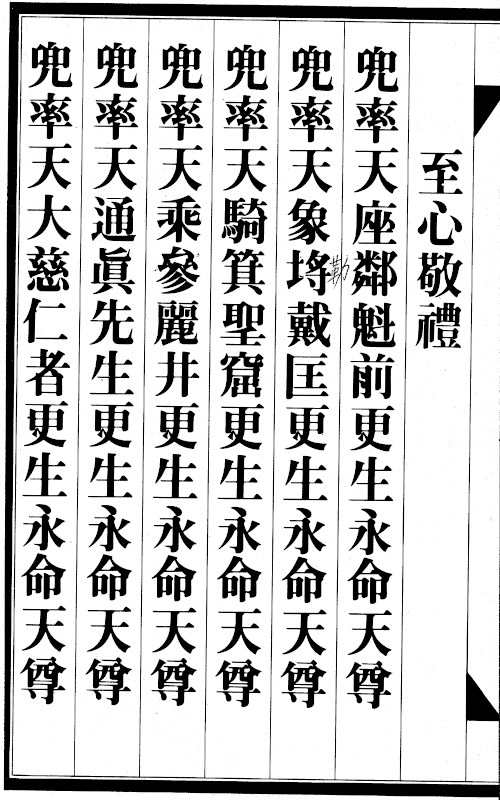 至心敬禮
兜率天座鄰魁前更生永命天尊
兜率天象埓戴匡更生永命天尊
勒
兜率天騎箕聖窟更生永命天尊
兜率天乘參麗井更生永命天尊
兜率天通眞先生更生永命天尊
兜率天大慈仁者更生永命天尊